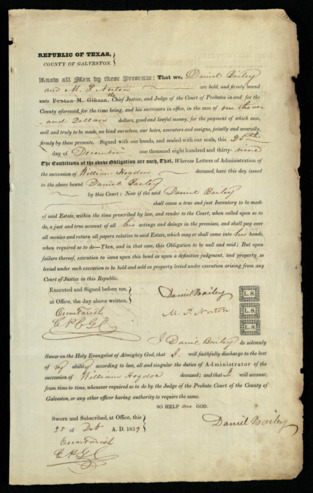 REPUBLIC OF TEXAS,
COUNTY OF GALVESTON.
Know all Men by these Presents: That we, Daniel Bailey
and M. P. Norton are held, and firmly bound
unto Chief Justice, and Judge of the Court of Probates in and for the
County aforesaid, for the time being, and his successors in office, in the sum of one thous-
and Dollars dollars, good and lawful money, for the payment of which sum,
well and truly to be made, we bind ourselves, our heirs, executors and assigns, jointly and severally,
firmly by these presents. Signed with our hands, and sealed with our seals, this
day of December one thousand eight hundred and thirty-
The Conditions of the above Obligation are such, That, Whereas Letters of Administration of
the succession of William deceased, have this day issued
to the above bound Daniel Bailey
by this Court: Now if the said Daniel Bailey
shall cause a true and just Inventory to be made
of said Estate, within the time prescribed by law, and render to the Court, when called upon so to
do, a just and true account of all actings and doings in the premises, and shall pay over
all monies and return all papers relative to said Estate, which may or shall come into hands,
when required so to do—Then, and in that case, this Obligation to be null and void; But upon
failure thereof, execution to issue upon this bond as upon a definitive judgment, and property so
levied under such execution to be held and sold as property levied under execution arising from any
Court of Justice in this Republic.
Executed and Signed before me,
at Office, the day above written,
Daniel Bailey L. S.
M. P. Norton L. S.
L. S.
L. S.
I Daniel Bailey do solemnly
Swear on the Holy Evangelist of Almighty God, that I will faithfully discharge to the best
of my ability according to law, all and singular the duties of Administrator of the
succession of William deceased; and that I will account,
from time to time, whenever required so to do by the Judge of the Probate Court of the County of
Galveston, or any other officer having authority to require the same.
SO HELP GOD.
Daniel Bailey
Sworn and Subscribed, at Office, this
A. D. 1839